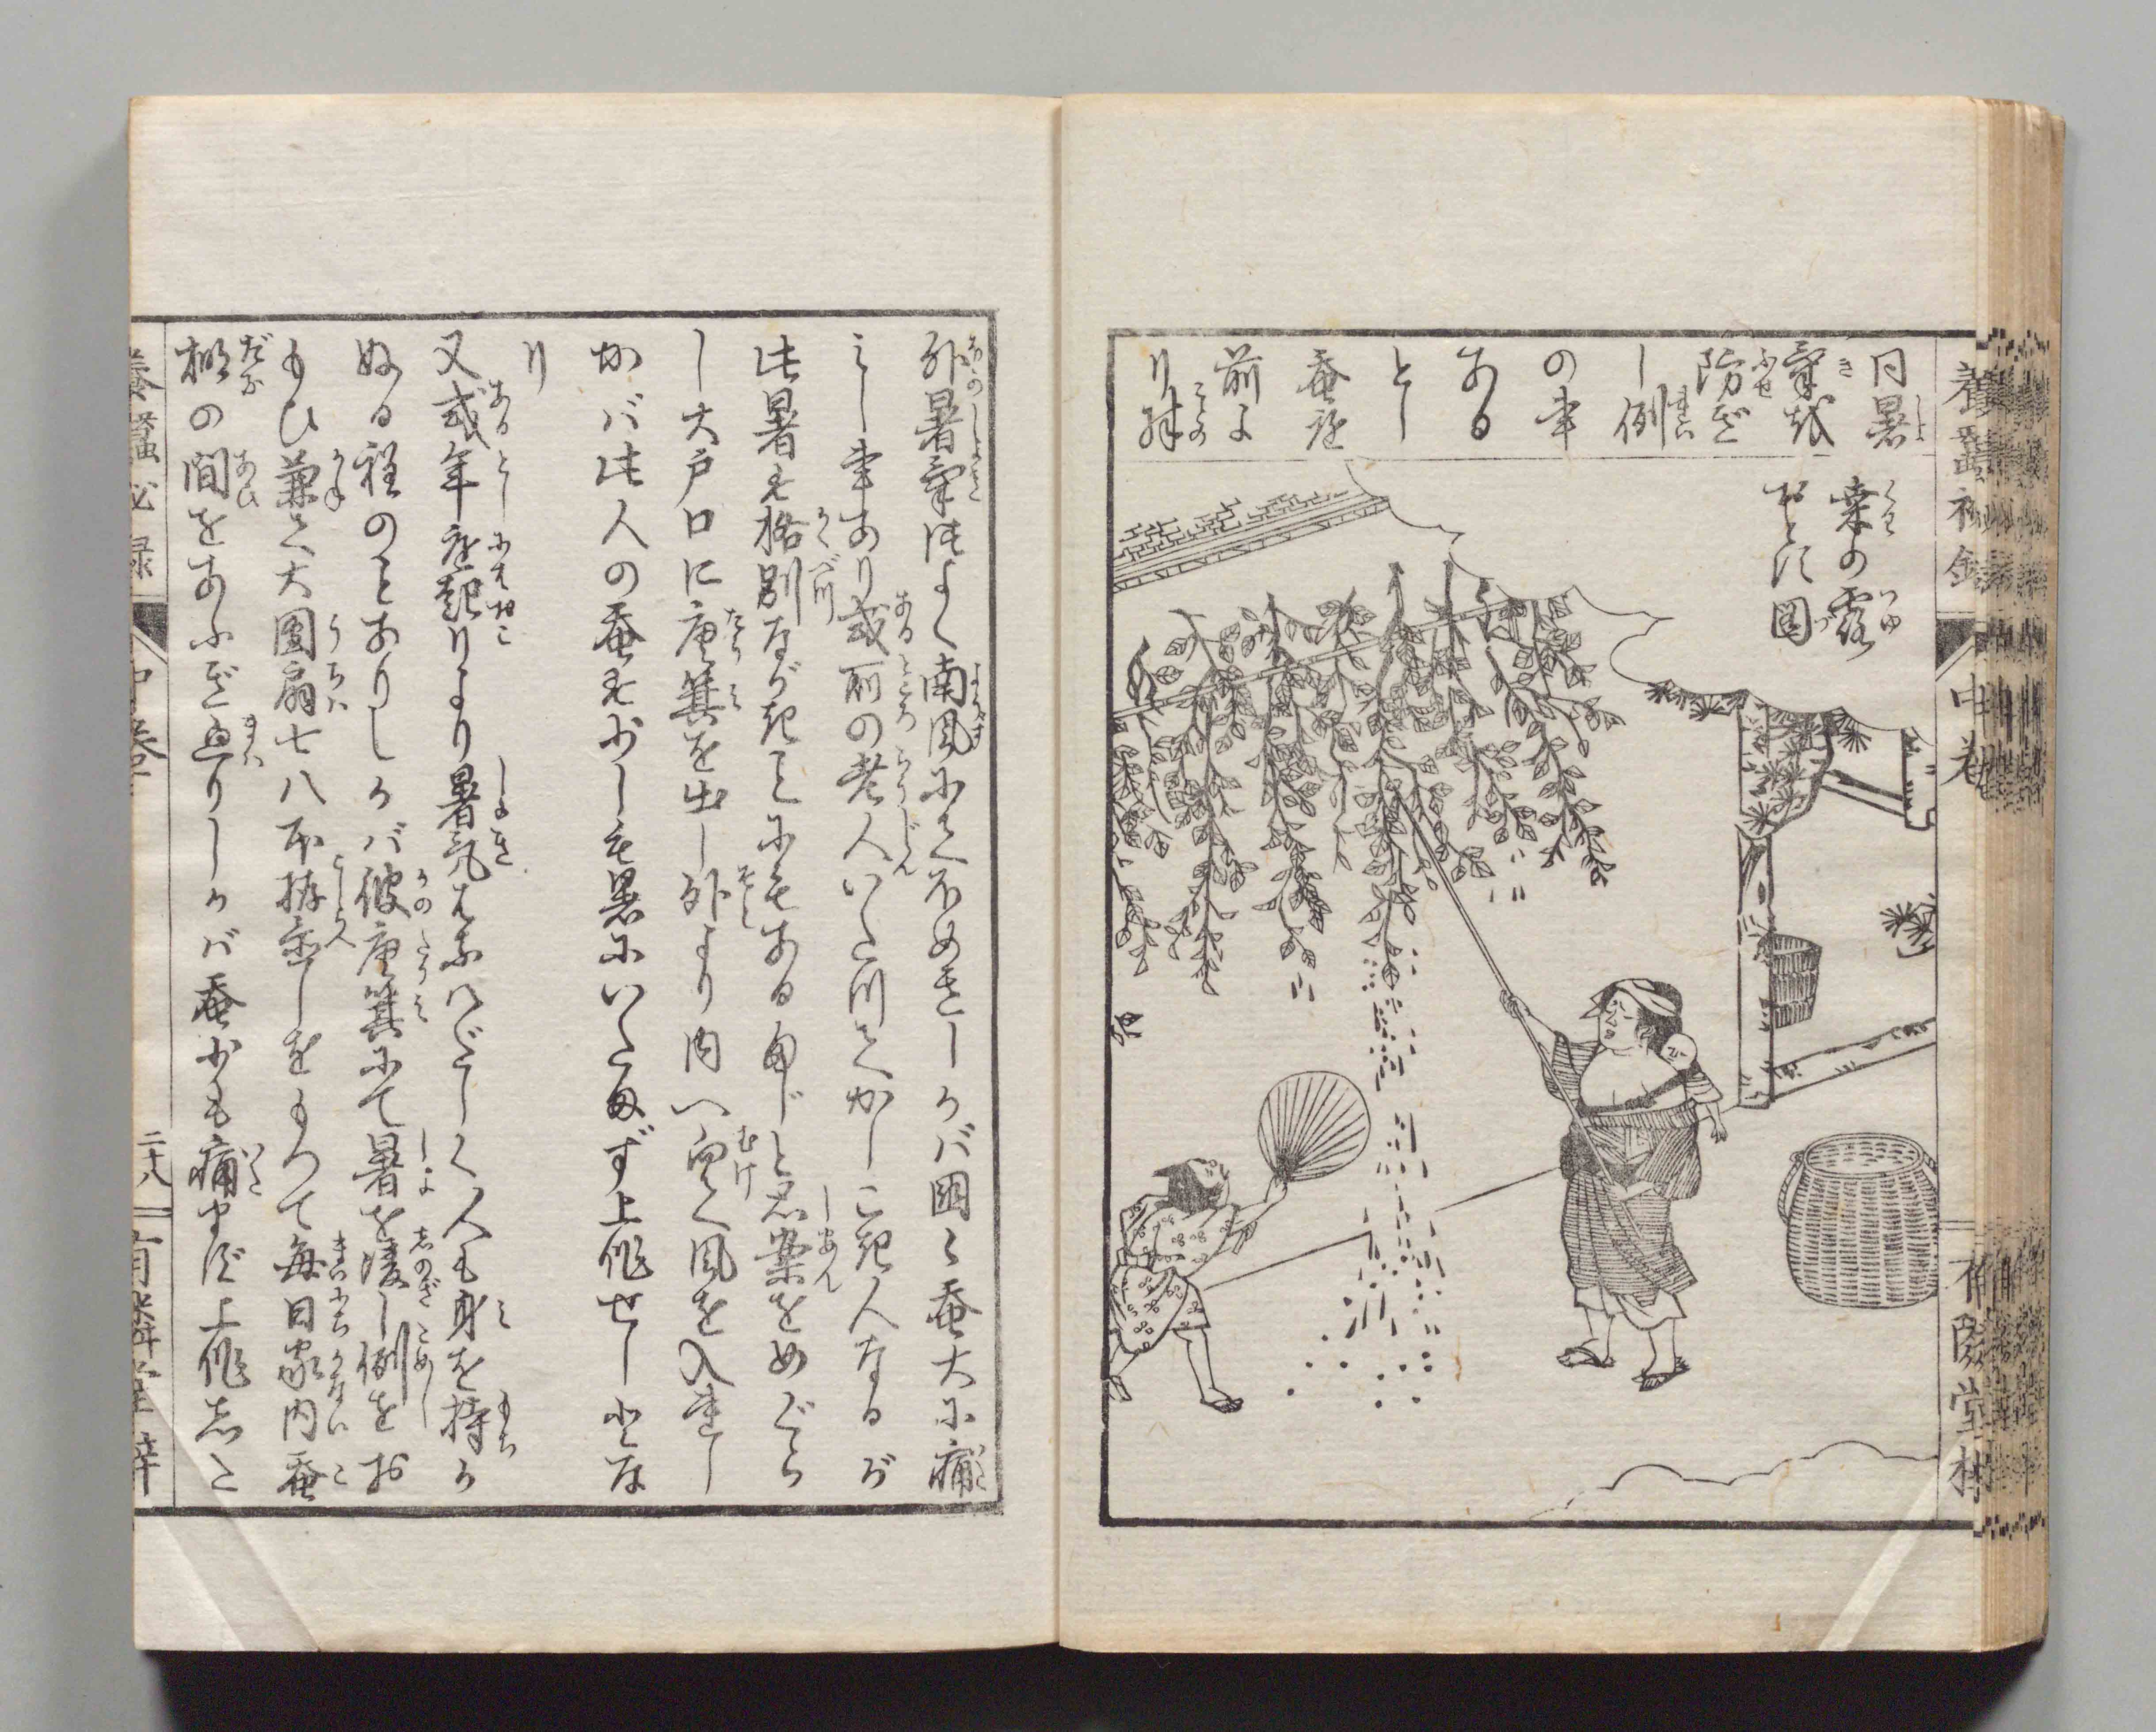 養蠶秘録 中巻 有隣堂梓
同暑
氣越
防ぎ
し例
の事
ある
とし
蚕庭
前よ
り殊
桑の露
おとす圖
外暑氣つよく南風にて不めきしかバ國々蚕大に痛
ミし事あり或所の老人いたつてかしこき人なるが
此暑さ格別ながきことにもあるまじと思案をめぐら
し大戸口に唐箕を出し外より内へ向て風を入連し
かバ此人の蚕は少しも暑にいたまず上作せしとな
り
又或年庭起りより暑気はなはだしく人も身を持か
ぬる程のことありしかバ彼唐箕にて暑を凌し例をお
もひ兼て大團扇七八本拵置しをもつて毎日家内蚕
棚の間をあふぎ廻りしかバ蚕少も痛まず上作した
養蠶秘録 中巻 二十八 有隣堂梓